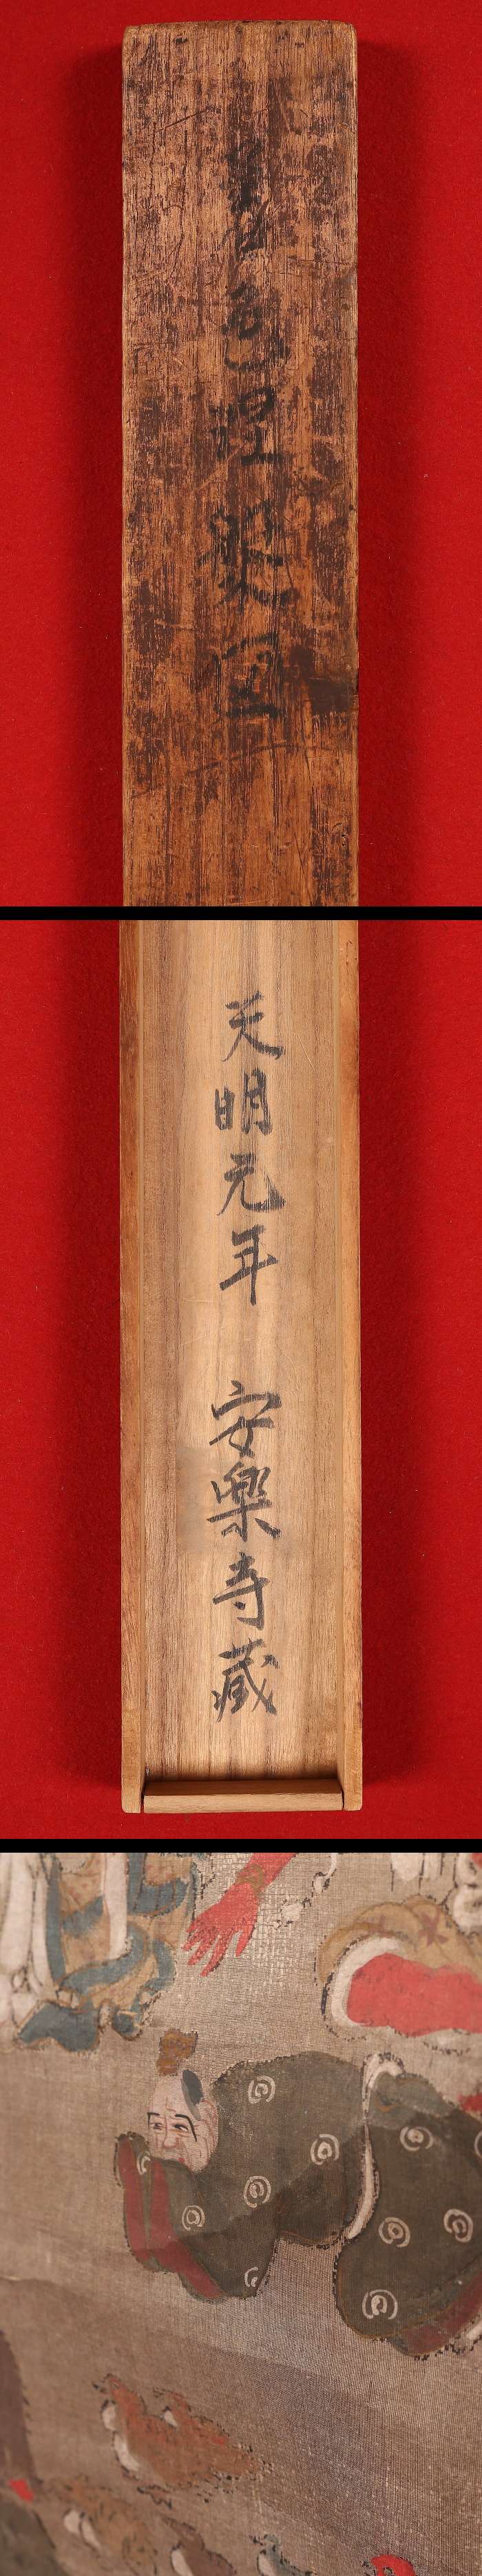 色涅槃図
天明元年 安樂寺藏